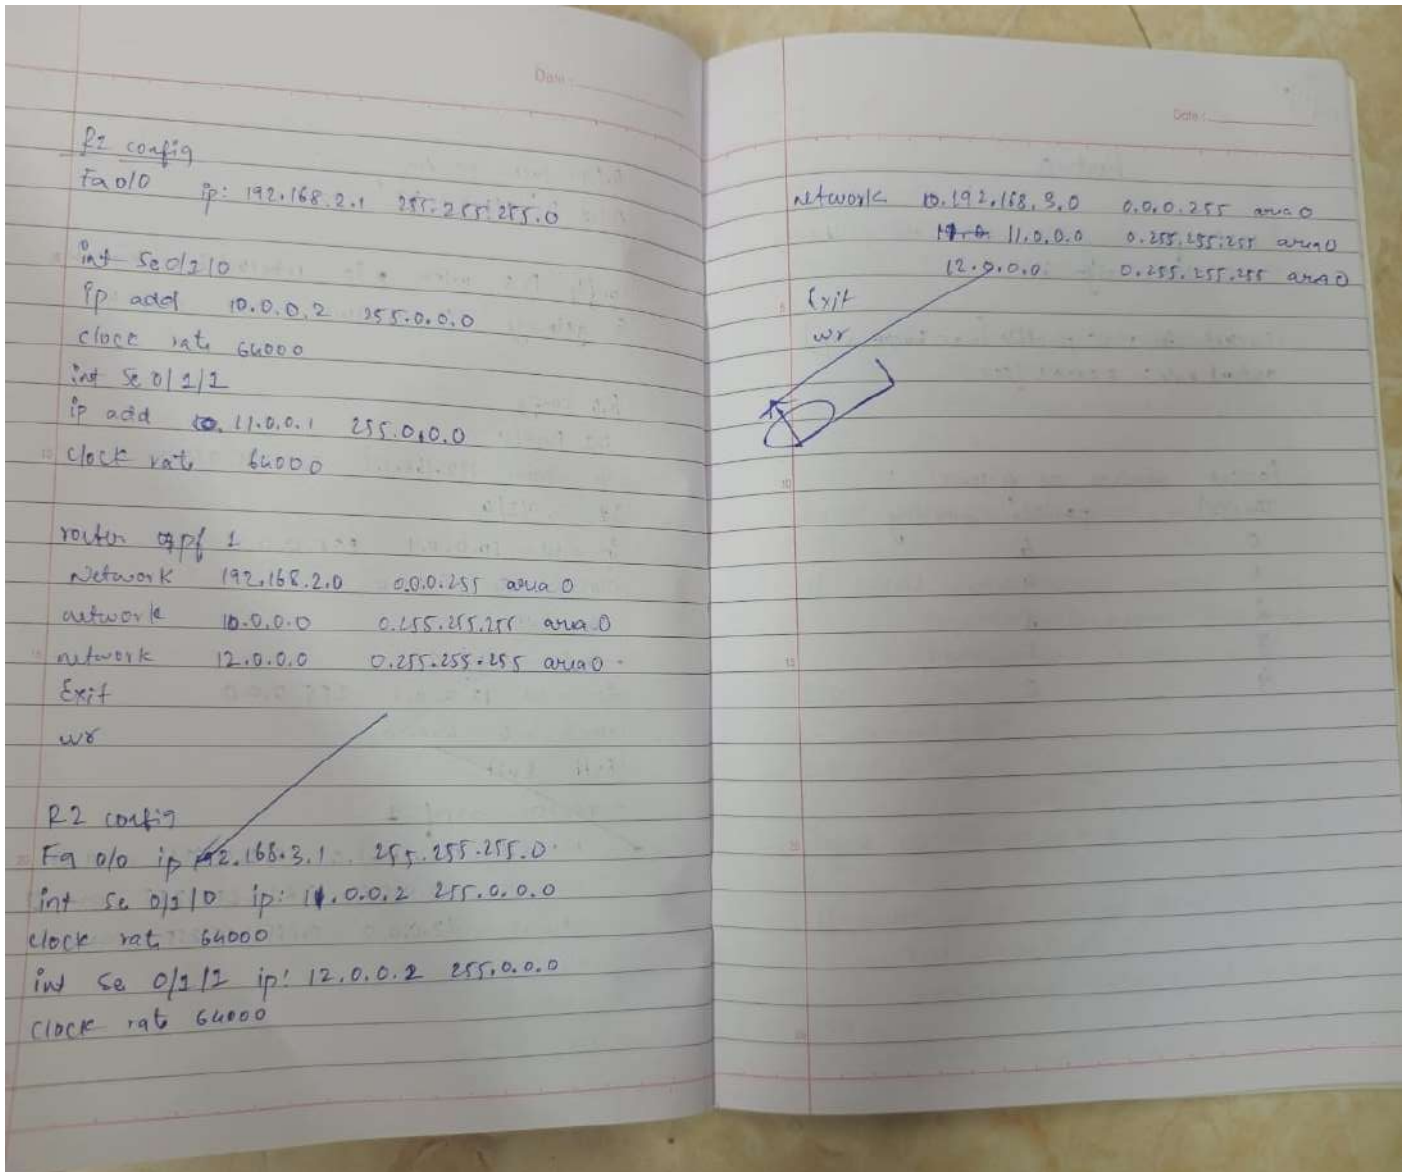 Date :
R1 config
Fa 0/0 ip: 192.168.2.1 255.255.255.0
int Se0/1/0
ip add 10.0.0.2 255.0.0.0
clock rate 64000
int Se 0/1/1
ip add 11.0.0.1 255.0.0.0
clock rate 64000
router ospf 1
Network 192.168.2.0 0.0.0.255 area 0
network 10.0.0.0 0.255.255.255 area 0
network 12.0.0.0 0.255.255.255 area 0
Exit
wr
R2 config
Fa 0/0 ip 192.168.3.1 255.255.255.0
int Se 0/1/0 ip: 11.0.0.2 255.0.0.0
clock rate 64000
int Se 0/1/1 ip: 12.0.0.2 255.0.0.0
clock rate 64000
Date :
network 192.168.3.0 0.0.0.255 area 0
11.0.0.0 0.255.255.255 area 0
12.0.0.0 0.255.255.255 area 0
Exit
wr